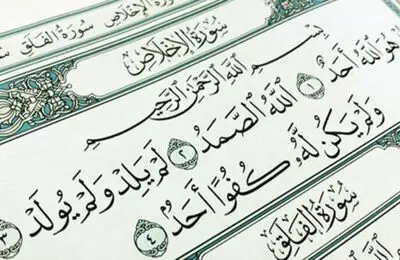 سورة الإخلاص سورة الفلق سورة
سُورَةُ الإِخْلَاصِ
بِسْمِ ٱللَّهِ ٱلرَّحْمَٰنِ ٱلرَّحِيمِ
هُوَ ٱللَّهُ أَحَدٌ ١ ٱللَّهُ ٱلصَّمَدُ ٢ لَمْ يَلِدْ وَلَمْ يُولَدْ ٣
وَلَمْ يَكُن لَّهُۥ كُفُوًا أَحَدٌ ٤
سُورَةُ الفَلَقِ